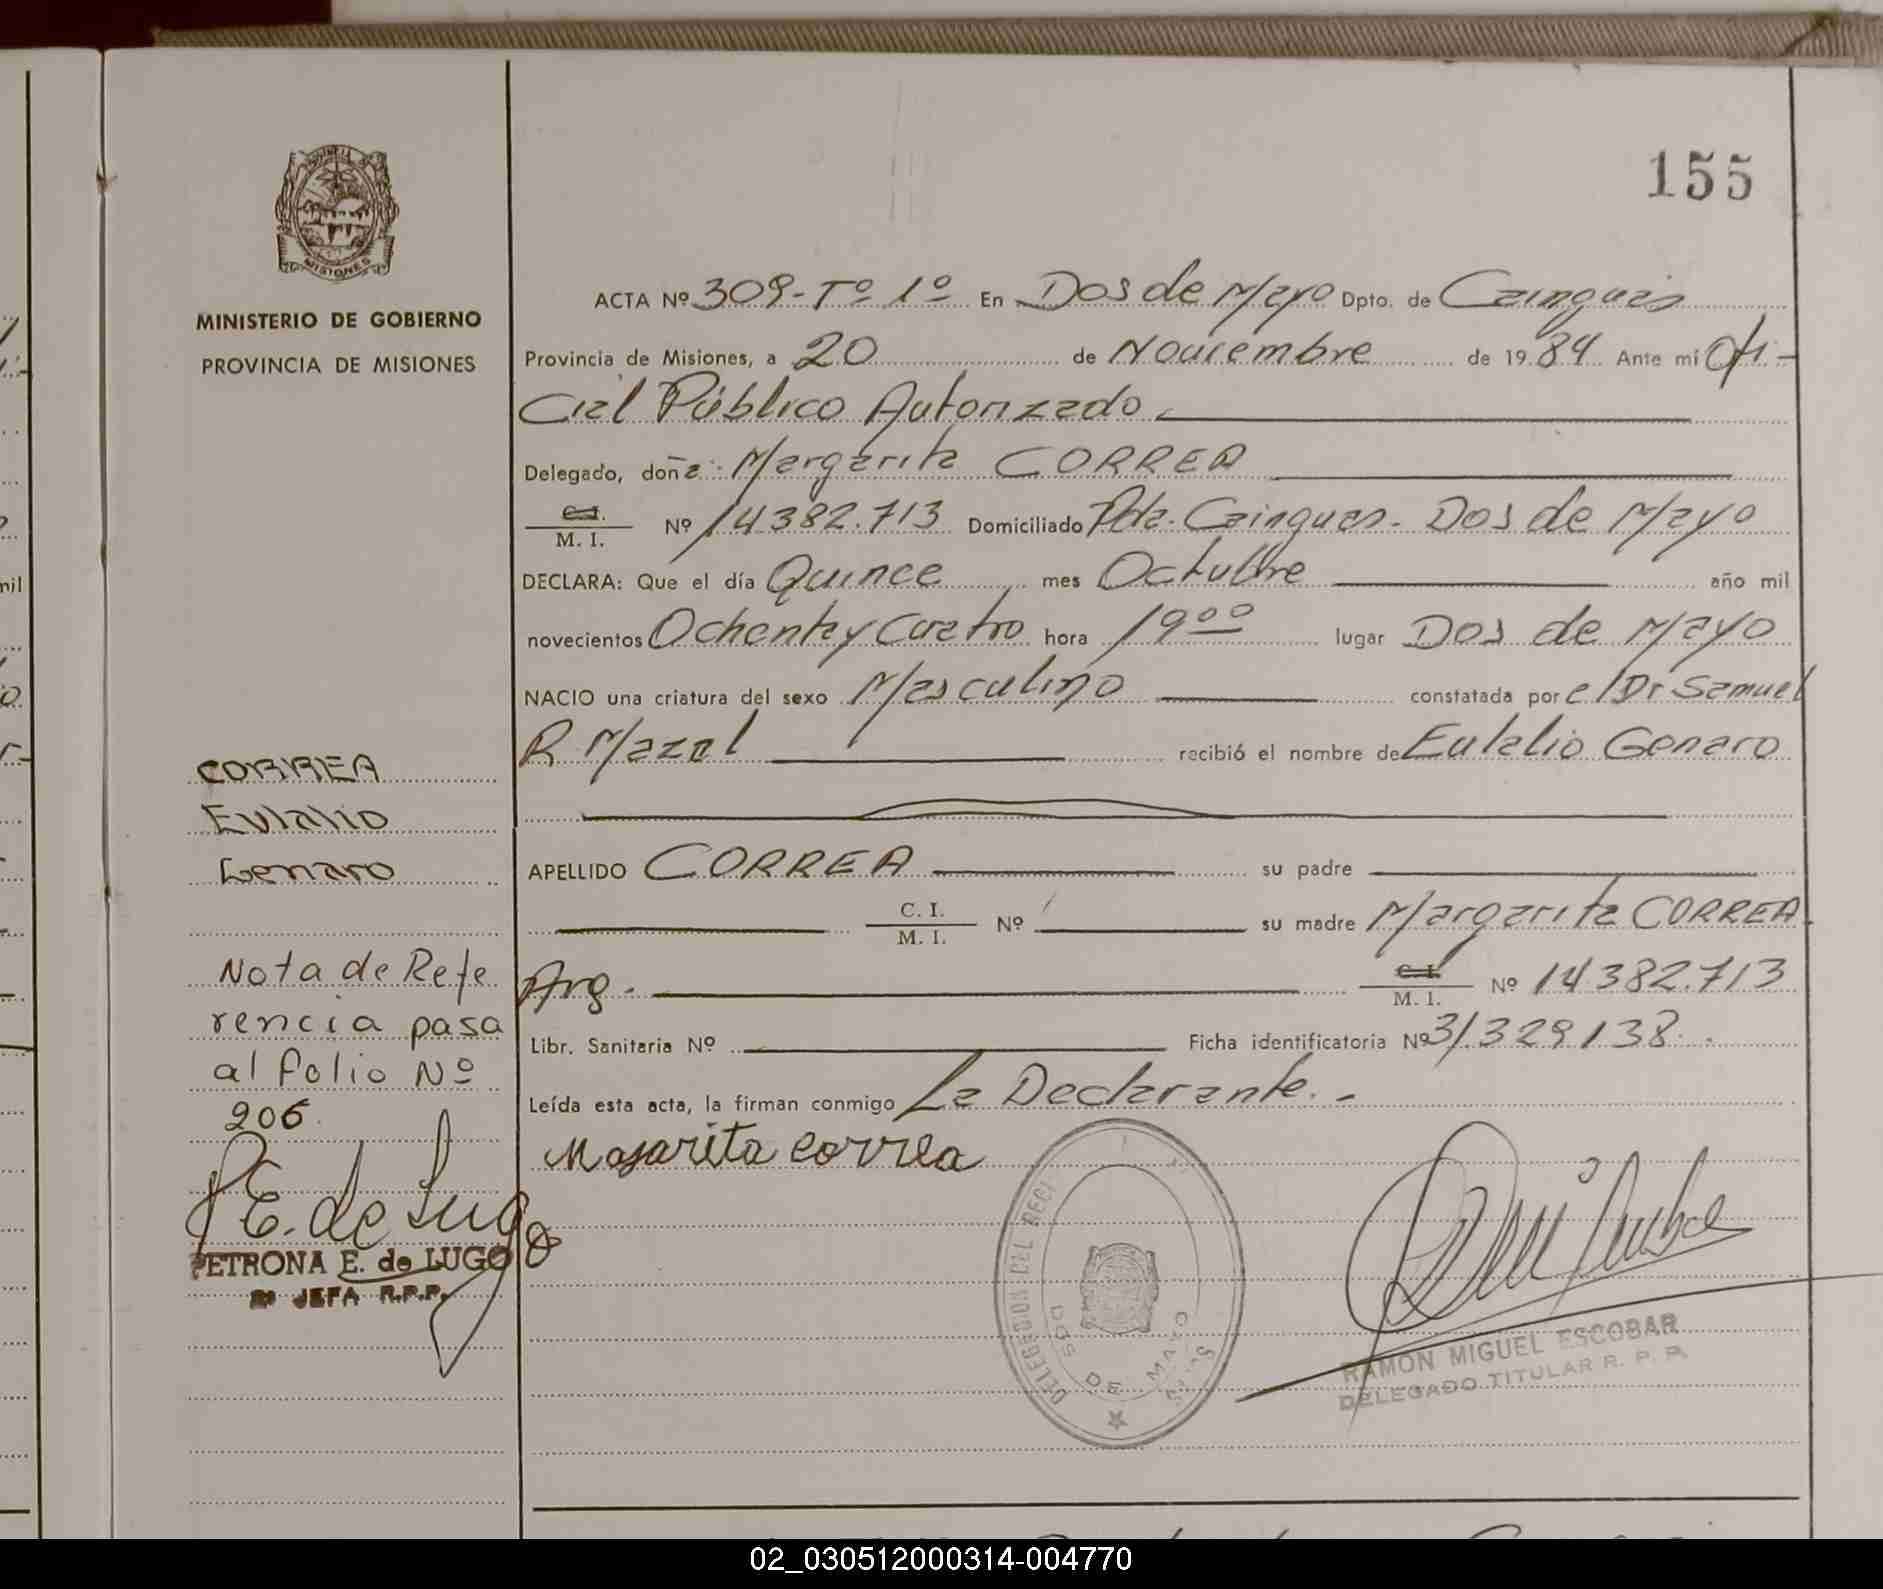 155
MISIONES
MINISTERIO DE GOBIERNO
PROVINCIA DE MISIONES
CORREA
Eulalio
Genaro
Nota de Refe
rencia pasa
al folio Nº
206.
P E. de Lugo
PETRONA E. de LUGO
2ª JEFA R.P.P.
ACTA Nº 309-Tº 1º En Dos de Mayo Dpto. de Cainguás
Provincia de Misiones, a 20 de Noviembre de 1984 Ante mí Ofi-
cial Público Autorizado
Delegado, doña: Margarita CORREA
C.I. M. I. Nº 14382.713 Domiciliado Pda. Cainguas. Dos de Mayo
DECLARA: Que el día Quince mes Octubre año mil
novecientos Ochenta y Cuatro hora 19ºº lugar Dos de Mayo
NACIO una criatura del sexo Masculino constatada por el Dr Samuel
R. Mazal recibió el nombre de Eulalio Genaro
APELLIDO CORREA su padre
C. I. M. I. Nº su madre Margarita CORREA
Arg. C.I. M. I. Nº 14.382.713
Libr. Sanitaria Nº Ficha identificatoria Nº 31329138.
Leída esta acta, la firman conmigo La Declarante.-
Margarita correa
DELEGACION DEL
DOS DE MAYO
RAMON MIGUEL ESCOBAR
DELEGADO TITULAR R. P. P.
mil
02_030512000314-004770